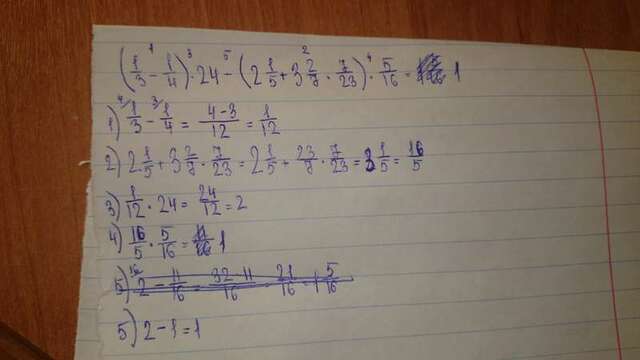 (1/3 - 1/4) · 24 - (2 1/5 + 3 2/7 · 7/23) · 5/16 = 1
1) 1/3 - 1/4 = 4-3/12 = 1/12
2) 2 1/5 + 3 2/7 · 7/23 = 2 1/5 + 23/7 · 7/23 = 3 1/5 = 16/5
3) 1/12 · 24 = 24/12 = 2
4) 16/5 · 5/16 = 1
5) 2 - 11/16 = 32-11/16 = 21/16 = 1 5/16
5) 2 - 1 = 1